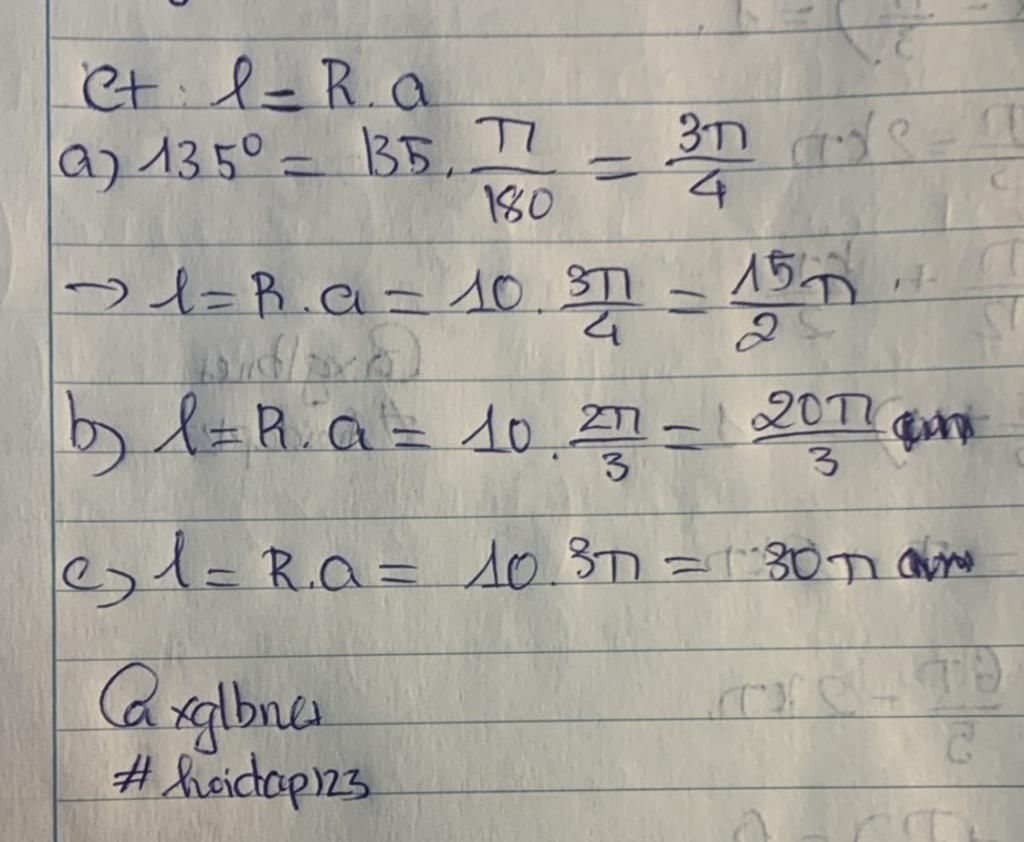 Ct: l = R.a
a) 135° = 135. π/180 = 3π/4
→ l = R.a = 10. 3π/4 = 15π/2
b) l = R.a = 10. 2π/3 = 20π/3
c) l = R.a = 10.3π = 30π
@xglbner
#hoidap123